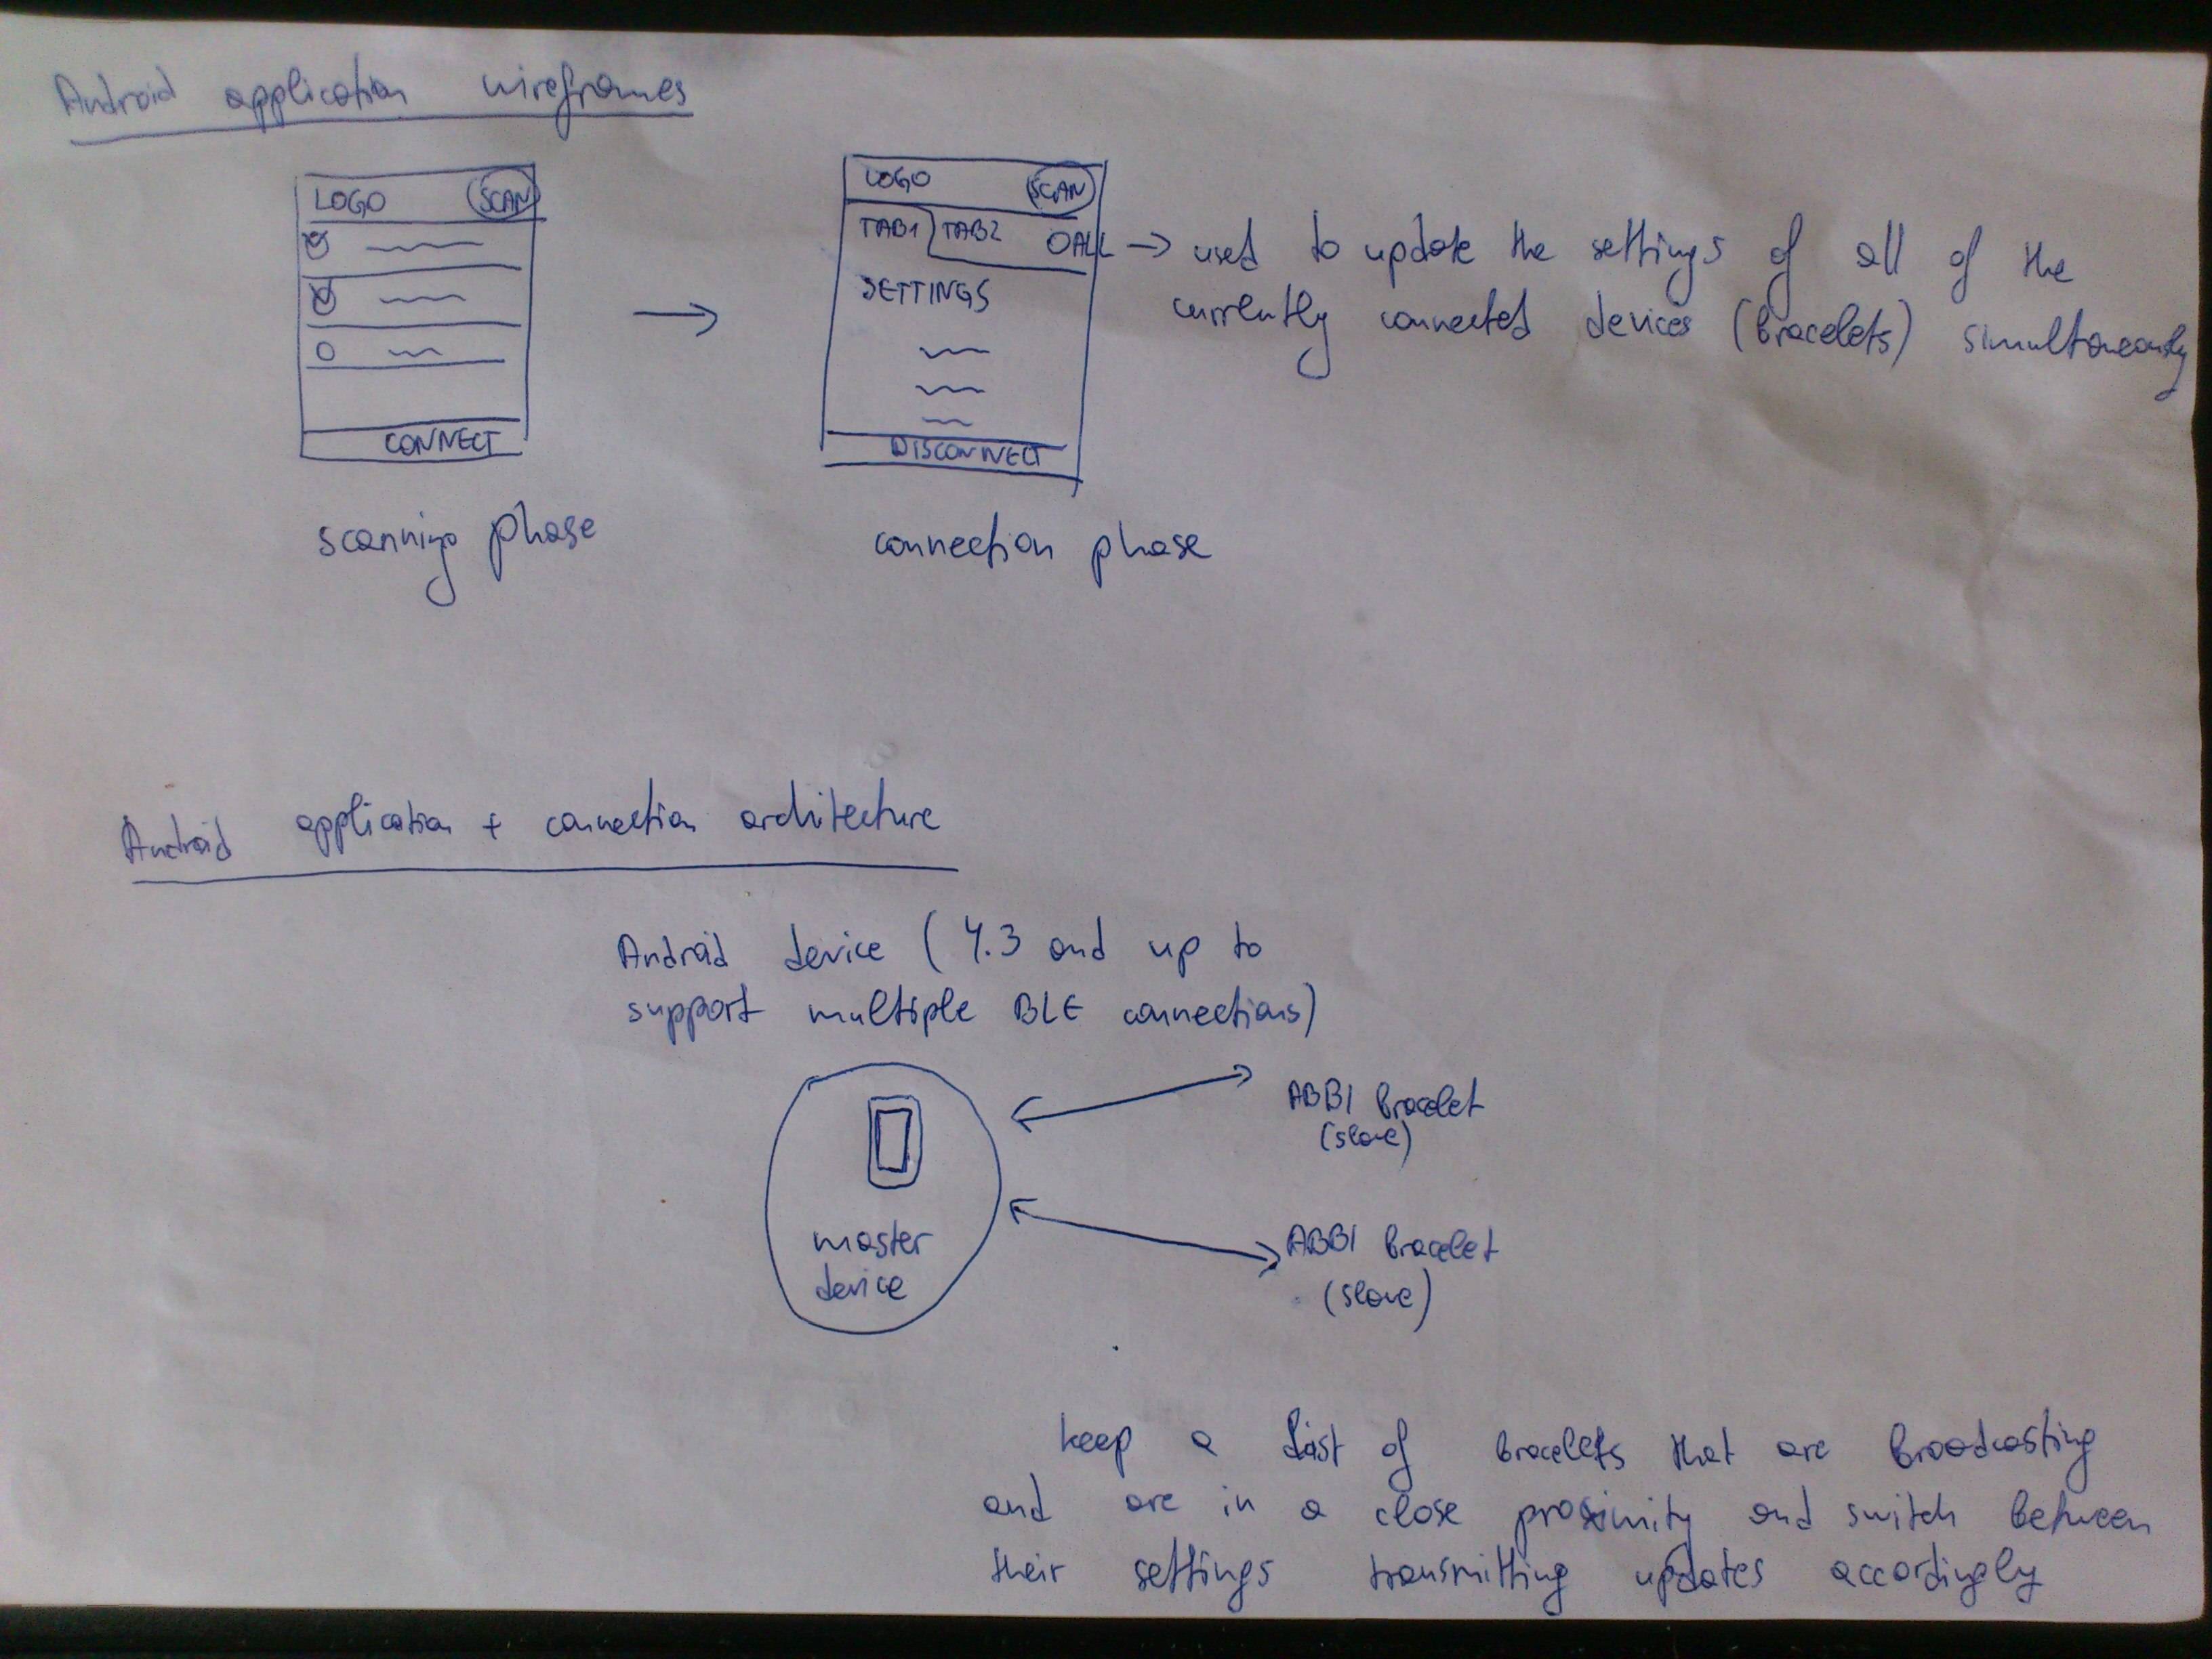 Android application wireframes
LOGO SCAN
CONNECT
scanning phase
LOGO SCAN
TAB1 TAB2 O ALL → used to update the settings of all of the
currently connected devices (bracelets) simultaneously
SETTINGS
DISCONNECT
connection phase
Android application + connection architecture
Android device (4.3 and up to
support multiple BLE connections)
master
device
ABBI bracelet
(slave)
ABBI bracelet
(slave)
keep a list of bracelets that are broadcasting
and are in a close proximity and switch between
their settings transmitting updates accordingly